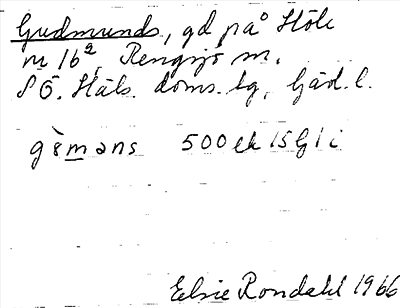 Gudmunds, gd på Höle
nr 16², Rengsjö sn.
SÖ. Häls. doms. tg, Gäd. l.
gɵ̀mans 500 ek 15G1i
Elsie Rondahl 1966